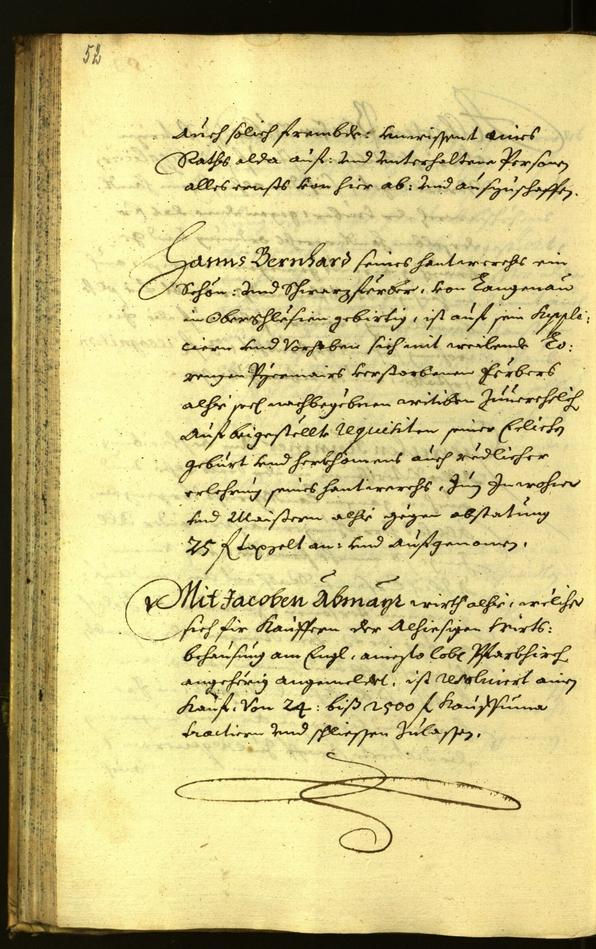 52
Auch solich frembde: unwissent aines
Raths alda auf: und unterhaltene Personen
alles ernsts von hier ab: und auszuschaffen.
Hanns Bernhard seines hantwerchs ein
Schön: und Schwarzferber, von Langenau
in Oberschlesien gebirtig, ist auf sein Suppli:
cieren und Vorhaben sich mit weilend Lo:
renzen verstorbenen Ferbers
alhie seel. nachbegebnen wittiben zuverehelich
auf beigestellte requisiten seiner Ehelichen
geburt und herkhomens auch redlicher
erlehrnung seines hantwerchs, zum Inwohner
und Maistern alhie gegen abstatung
25 f toppelt an: und aufgenomen.
Mit Jacoben Abmayr wirth alhie, welicher
sich fir Kauffern der alhiesigen Wirts:
behausung am Engl, ainer lobl Pfarrkirch
angehörig angemeldet, ist resolviert ainen
Kauf, von 24: biß 2500 f Kaufsuma
tractiern und schliessen zulassen.